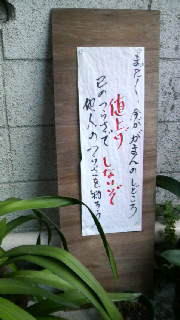 まだ〱 今が がまんのしどころ
値上げ しないぞ
己のつらさで
他人のつらさを知ろう